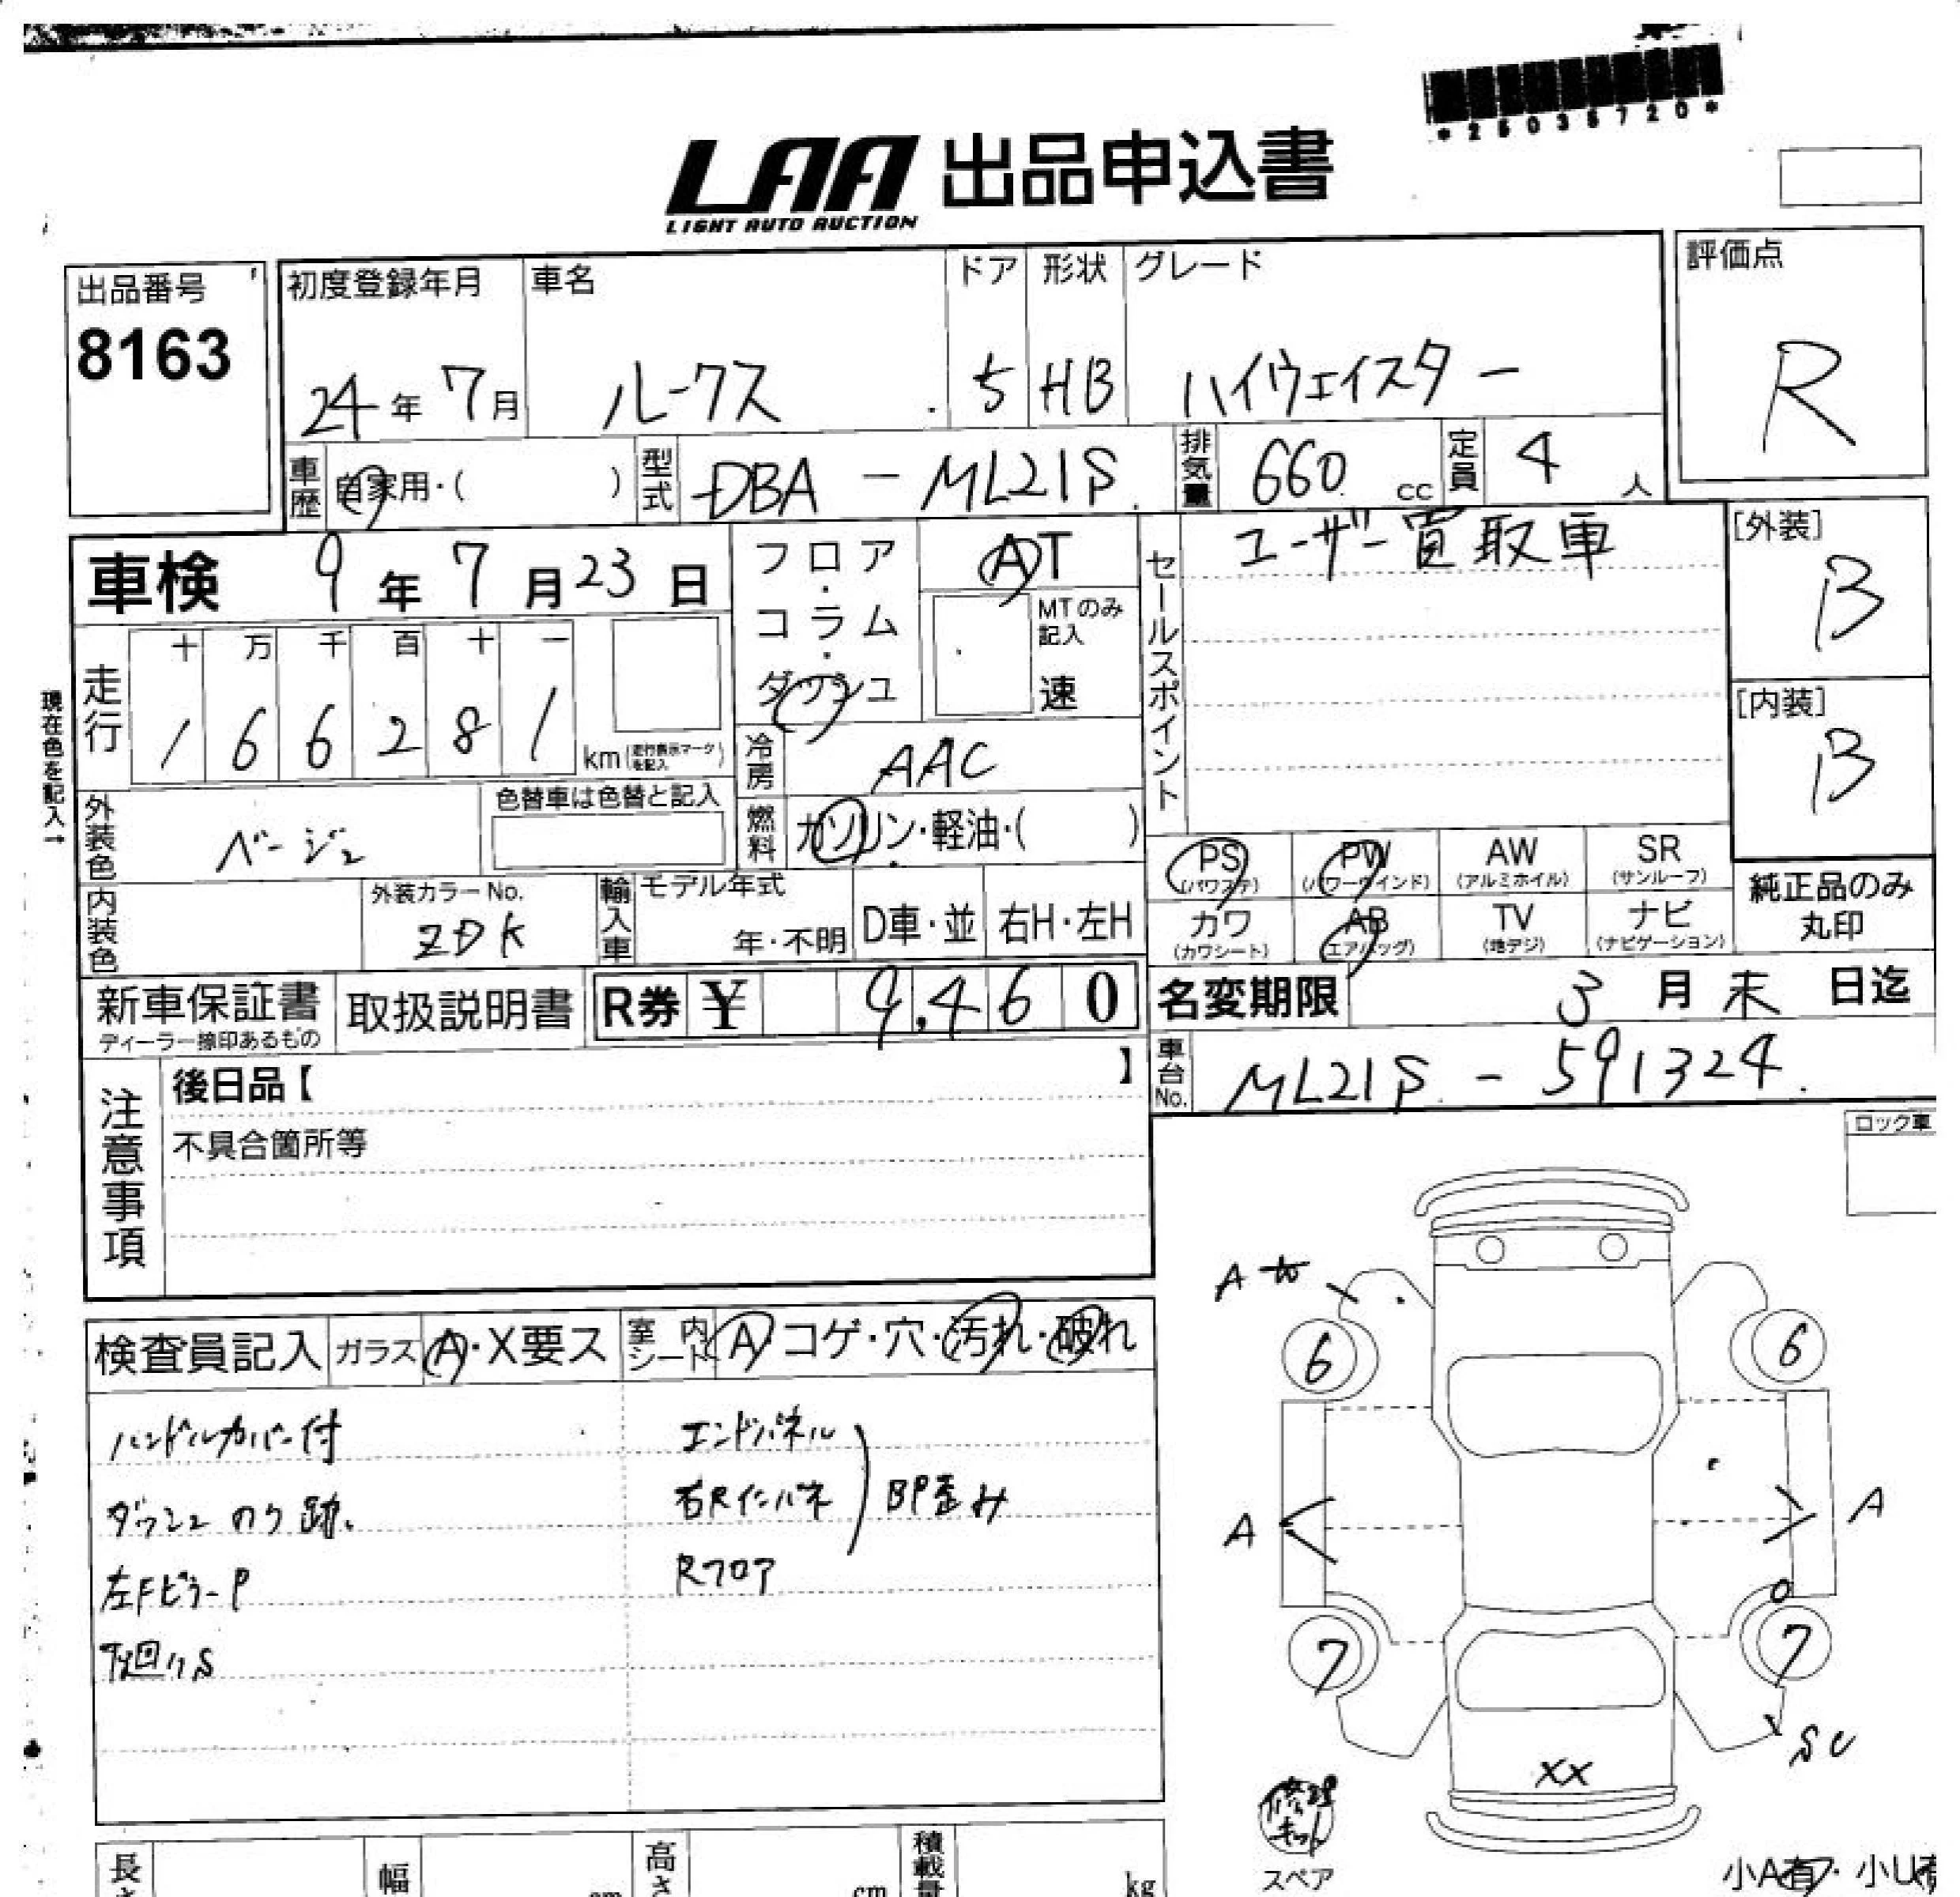 *25035720*
LAA 出品申込書
LIGHT AUTO AUCTION
出品番号
8163
初度登録年月 車名 ドア 形状 グレード
24年 7月 ルークス 5 HB ハイウェイスター
評価点
R
車歴 自家用・( ) 型式 DBA - ML21S 排気量 660 cc 定員 4 人
車検 9年 7月 23日
フロア・コラム・ダッシュ
AT
MTのみ記入
速
セールスポイント
ユーザー買取車
[外装]
B
[内装]
B
現在色を記入→
走行 十 万 千 百 十 一
1 6 6 2 8 1 km (走行表示マークを記入)
冷房 AAC
燃料 ガソリン・軽油・( )
外装色 ベージュ 色替車は色替と記入
内装色 外装カラーNo. ZDK
輸入車 モデル年式 年・不明 D車・並 右H・左H
PS (パワステ) PW (パワーウインド) AW (アルミホイル) SR (サンルーフ)
カワ (カワシート) AB (エアバッグ) TV (地デジ) ナビ (ナビゲーション)
純正品のみ丸印
新車保証書 ディーラー捺印あるもの 取扱説明書 R券 ¥ 9,460
名変期限 3月末日迄
車台No. ML21S - 591324
注意事項
後日品【 】
不具合箇所等
ロック車
検査員記入 ガラス A・X要ス 室内シート A コゲ・穴・汚れ・破れ
ハンドルカバー付
ダッシュのり跡
左FピラーP
下回りS
エンドパネル
右Rインパネ
Rフロア
BP歪み
A
6 6
A A
7 7
SU
XX
修理キット
スペア
小A有・小U有
長さ 幅 cm 高さ cm 積載量 kg